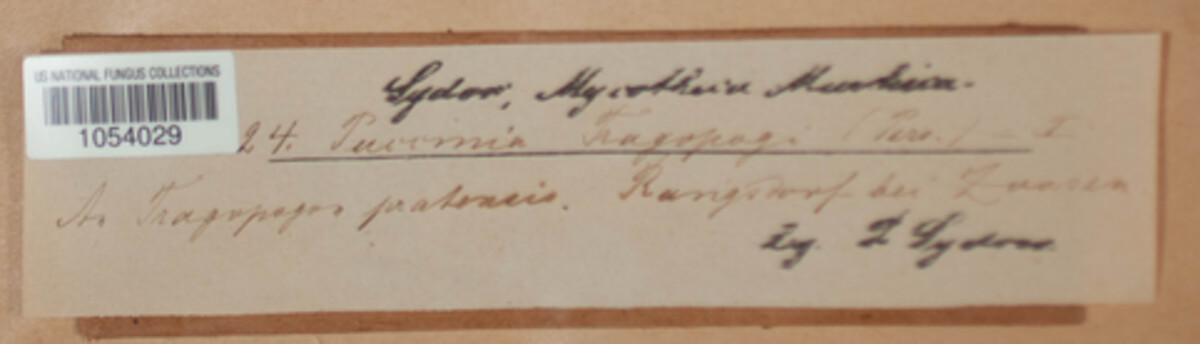 US NATIONAL FUNGUS COLLECTIONS
1054029
Sydow, Mycotheca Marchica.
24. Puccinia Tragopogi (Pers.) - I
An Tragopogon pratensis. Rangsdorf bei Zossen
leg. P. Sydow.